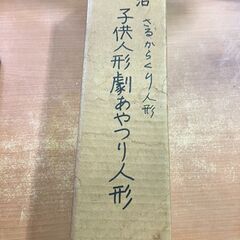 さるからくり人形
子供人形劇あやつり人形